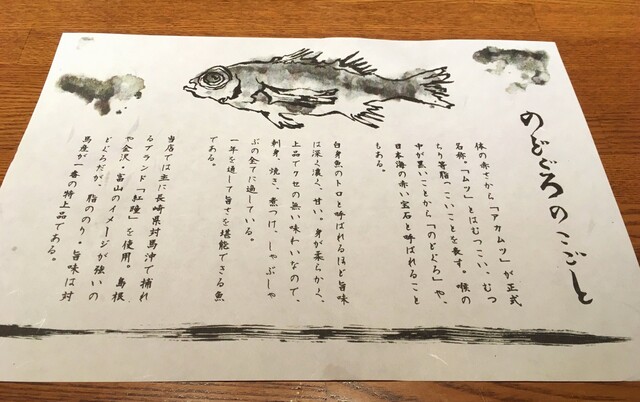 のどぐろのこごと
体の赤さから「アカムツ」が正式
名称。「ムツ」とはむつこい、むつ
ちり等脂っこいことを表す。喉の
中が黒いことから「のどぐろ」や、
日本海の赤い宝石と呼ばれること
もある。
白身魚のトロと呼ばれるほど旨味
は深く濃く、甘い。身が柔らかく、
上品でクセの無い味わいなので、
刺身、焼き、煮つけ、しゃぶしゃ
ぶの全てに適している。
一年を通して旨さを堪能できる魚
である。
当店では主に長崎県対馬沖で捕れ
るブランド「紅瞳」を使用。島根
や金沢・富山のイメージが強いの
どぐろだが、脂ののり。旨味は対
馬産が一番の特上品である。